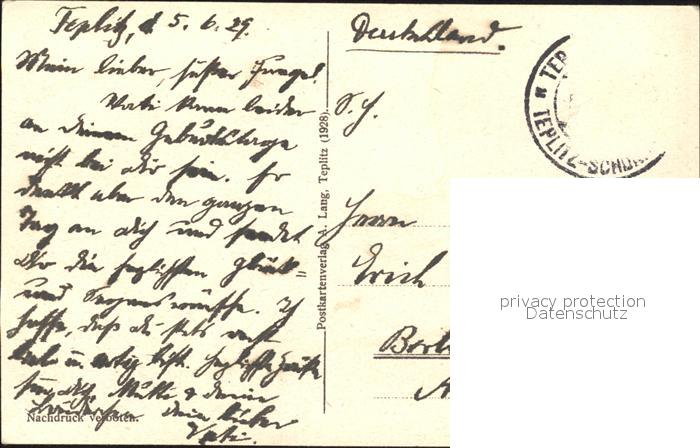 Teplitz, d 5. 6. 29.
Mein lieber, süßer Junge!
Vati kann leider
an deinem Geburtstage
nicht bei dir sein. Er
denkt aber den ganzen
Tag an dich und sendet
dir die herzlichsten Glück-
und Segenswünsche. Ich
hoffe, daß du stets recht
lieb u. artig bist. Herzlichste Grüße
für dich, Mutti & deine
dein lieber
Vati.
Nachdruck verboten.
Postkartenverlag A. Lang, Teplitz (1928).
Deutschland.
TEPLITZ-SCHÖN
TEP
S. H.
Herrn
Erich
Berl
privacy protection
Datenschutz